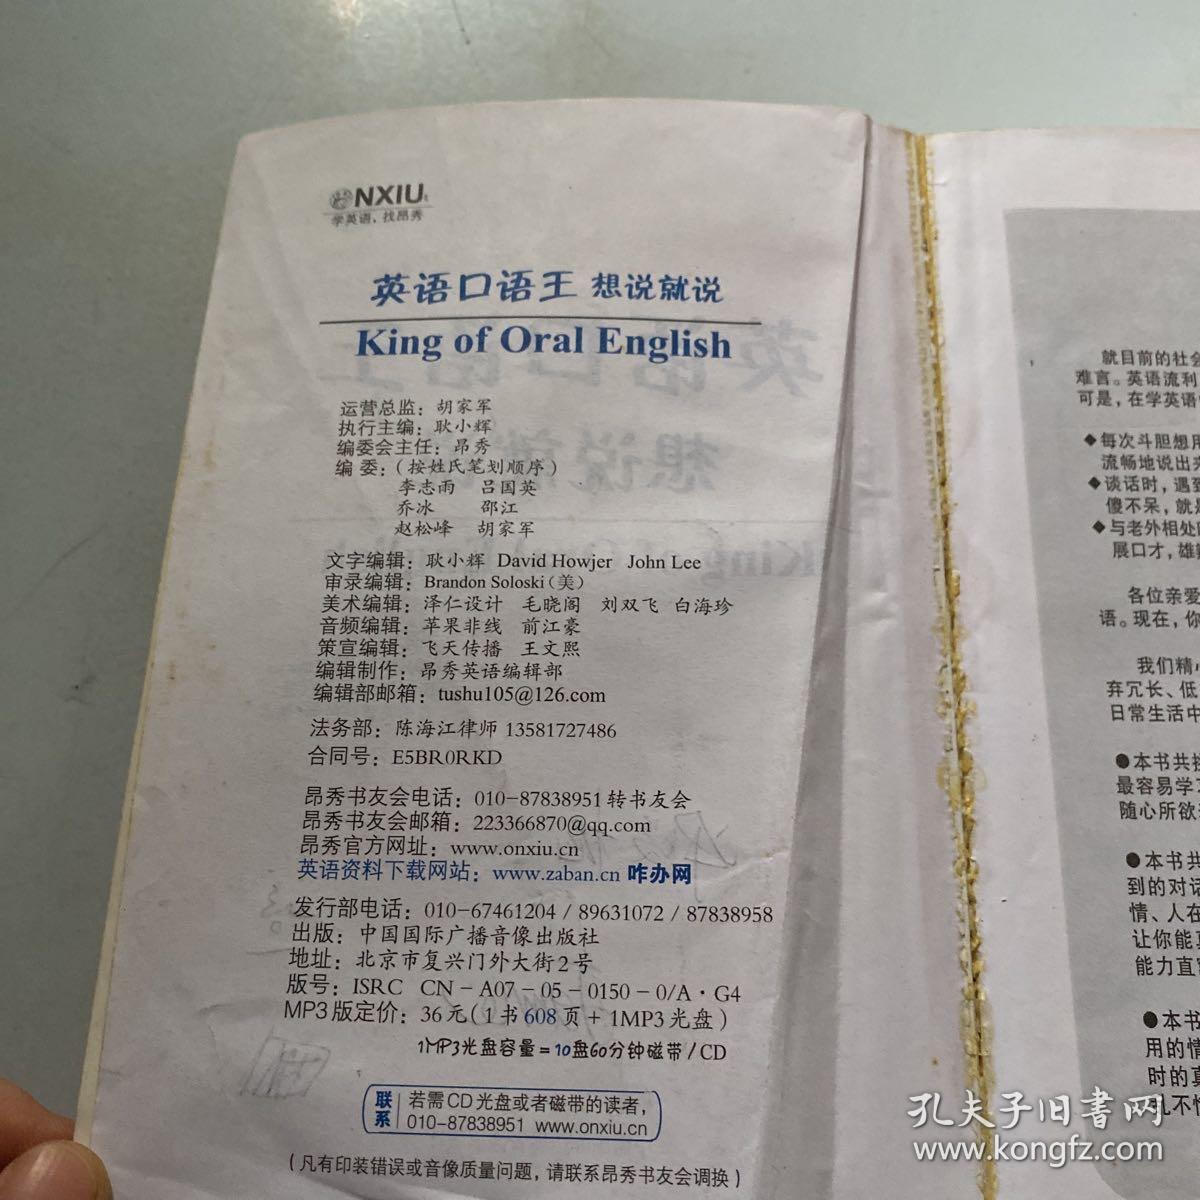 ONXIU
学英语，找昂秀
英语口语王 想说就说
King of Oral English
运营总监：胡家军
执行主编：耿小辉
编委会主任：昂秀
编 委：(按姓氏笔划顺序)
李志雨 吕国英
乔冰 邵江
赵松峰 胡家军
文字编辑：耿小辉 David Howjer John Lee
审录编辑：Brandon Soloski(美)
美术编辑：泽仁设计 毛晓阁 刘双飞 白海珍
音频编辑：苹果非线 前江豪
策宣编辑：飞天传播 王文熙
编辑制作：昂秀英语编辑部
编辑部邮箱：tushu105@126.com
法务部：陈海江律师 13581727486
合同号：E5BR0RKD
昂秀书友会电话：010-87838951 转书友会
昂秀书友会邮箱：223366870@qq.com
昂秀官方网址：www.onxiu.cn
英语资料下载网站：www.zaban.cn 咋办网
发行部电话：010-67461204 / 89631072 / 87838958
出版：中国国际广播音像出版社
地址：北京市复兴门外大街2号
版号：ISRC CN-A07-05-0150-0/A·G4
MP3版定价：36元(1书608页+1MP3光盘)
1MP3光盘容量=10盘60分钟磁带/CD
联系 若需CD光盘或者磁带的读者，
010-87838951 www.onxiu.cn
(凡有印装错误或音像质量问题，请联系昂秀书友会调换)
就目前的社会
难言。英语流利
可是，在学英语
◆每次斗胆想用
流畅地说出来
◆谈话时，遇到
傻不呆，就是
◆与老外相处
展口才，雄
各位亲爱
语。现在，你
我们精心
弃冗长、低
日常生活中
●本书共
最容易学
随心所欲
●本书共
到的对话
情、人在
让你能
能力直
●本书
用的情
时的真
孔夫子旧书网
www.kongfz.com